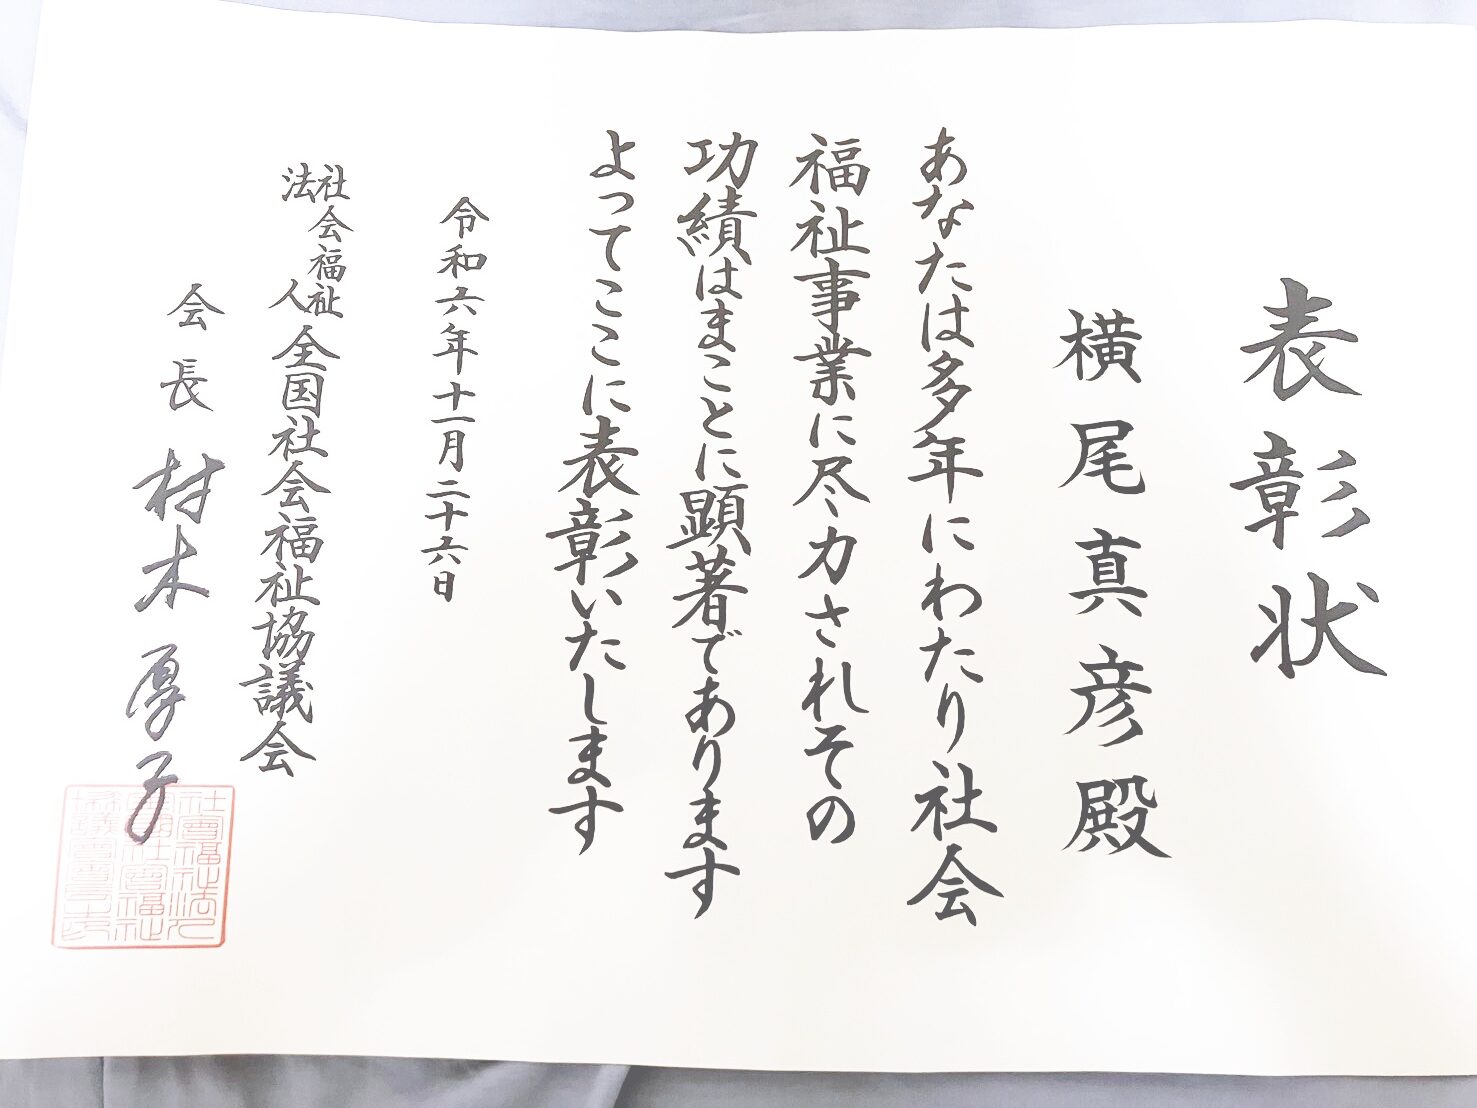 表彰状
横尾真彦殿
あなたは多年にわたり社会
福祉事業に尽力されその
功績はまことに顕著であります
よってここに表彰いたします
令和六年十一月二十六日
社会福祉法人全国社会福祉協議会
会長 村木厚子